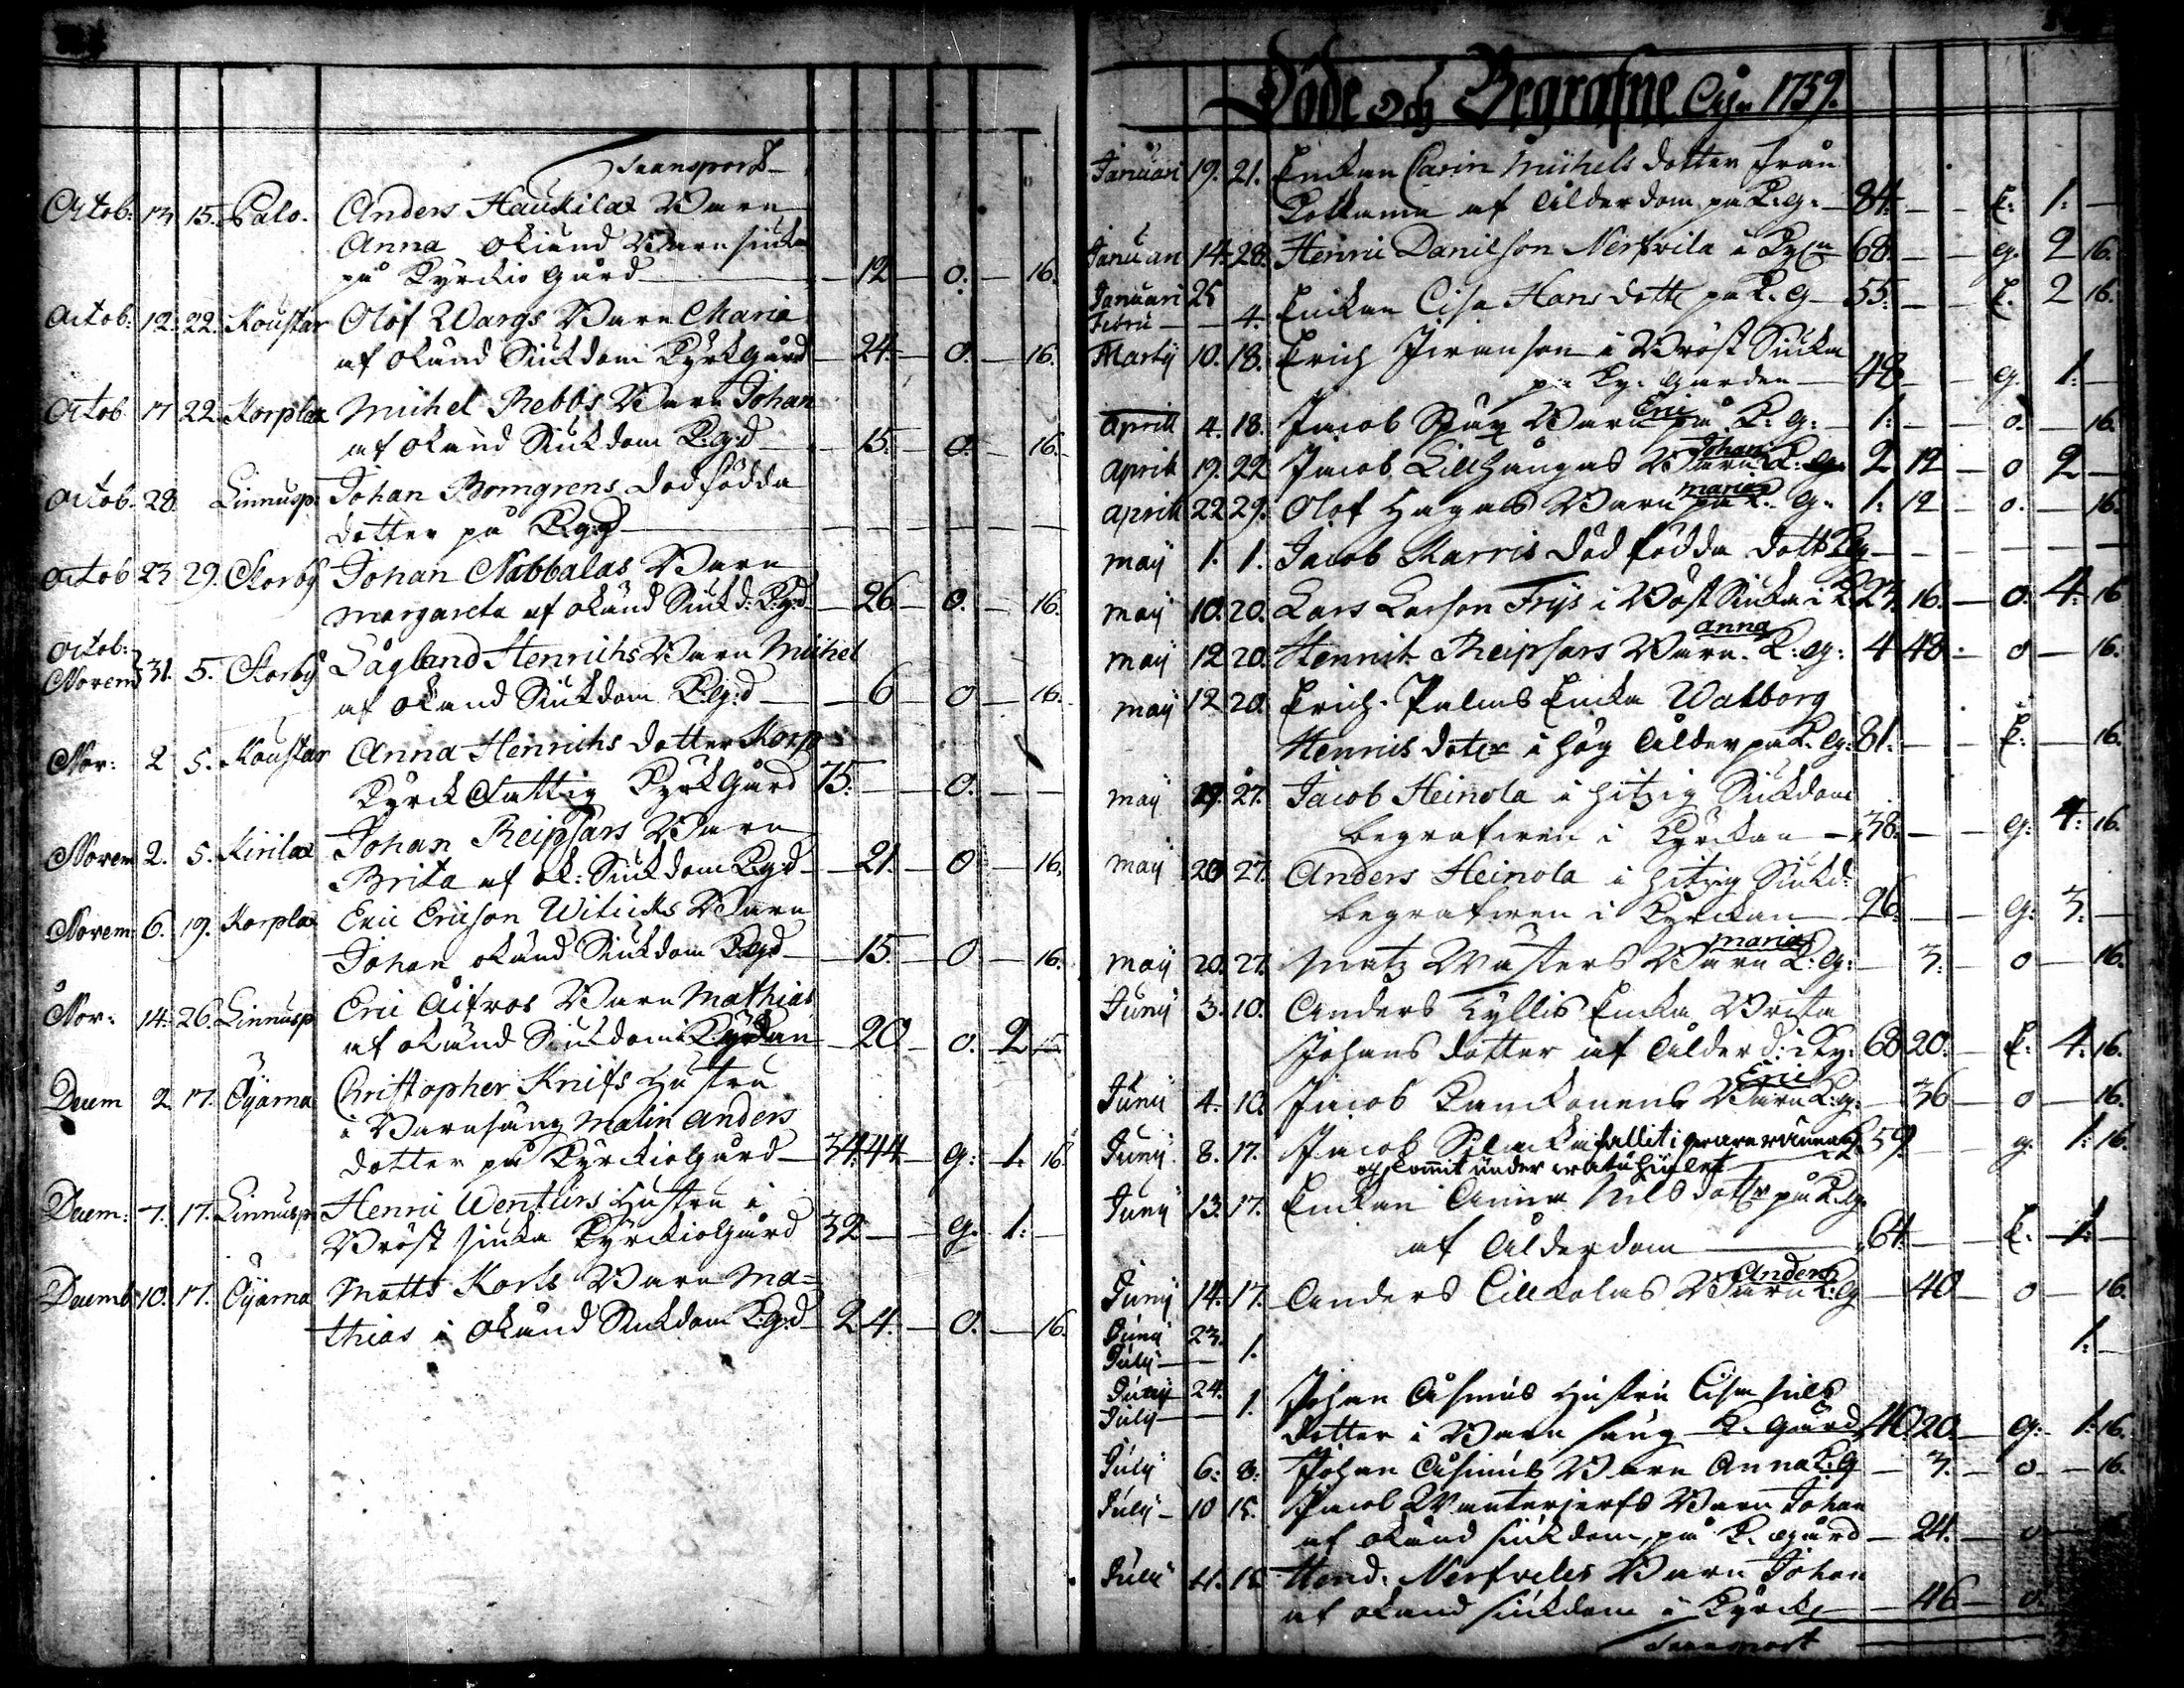 Transport
Octob: 13 15. Palo. Anders Haukilax Barn
Anna okiund Barnsiuka
på Kyrkio gård — 12 — o. — 16.
Octob: 12. 22. Koustar Olof Wargs Barn Maria
af okand Siukdom Kyrkgård — 24. — o. — 16.
Octob 17 22. Korplax Michel Rebbs Barn Johan
af okand Siukdom K:g:d — 15. — o. — 16.
Octob. 28. Linnusp: Johan Bomgrens dödfödda
dotter på K:g:d — — — —
Octob 23 29. Storby Johan Nabbalas Barn
Margareta af okand Siukd: K:g:d — 26 — o. — 16.
Octob:
Novem 31. 5. Storby Lågland Henrichs Barn Michel
af okand Siukdom K:g:d — 6 — o — 16.
Nov: 2 5. Koustar Anna Henrichs dotter Korp
Kyrck Fattig Kyrkgård 75: — — o. — —
Novem 2. 5. Kirilax Johan Reipsars Barn
Brita af ok: Siukdom K:g:d — 21. — o — 16.
Novem 6. 19. Korplax Eric Ericson Witicks Barn
Johan okand Siukdom K:g:d — 15. — o — 16.
Nov: 14. 26. Linnusp Eric Åifros Barn Mathias
af okand Siukdom i Kyrkan — 20 — o. 2
Decem 2. 17. Öyarna Christopher Knifs Hustru
i Barnsäng Malin Anders
dotter på Kyrkiogård — 34. 44 — g: — 1: 16.
Decem: 7. 17. Linnusp: Henric Wenturs Hustru i
Bröst siuka Kyrkiogård 32 — — g. 1: —
Decemb 10. 17. Öyarna Matts Karls Barn Ma=
thias i okand Siukdom K:g:d — 2 4. — o. — 16.
Döde och Begrafne 1759.
Januari 19. 21. Enckan Carin Michels dotter från
af Ålderdom på K:g: — 84. — — E: 1: —
Januari 14. 28. Henric Danielson Nerfvila i 68. — — g. 2 16.
Januari 25
Febru — — 4. Enckan Lisa Hans dotter på K. g — 55: — — E. 2 16.
Martij 10. 18. Erich i Bröst Siuka
på Ky: gården — 48 — — g. 1: —
Aprill 4. 18. Jacob Spåx Barn Eric på K: g: — 1: — — o. — 16.
Aprill 19. 22 Jacob Lillhangas Barn Johan K: g. 2 12 — o 2 —
Aprill 22 29. Olof Hagas Barn Maria på K. g. 1: 12 — o. — 16.
Maij 1. 1. Jacob Karris död födda dott K:g — — — —
Maij 10. 20. Lars Larson Frijs i Bröst Siuka i K 23. 16. — o. 4: 16
Maij 12 20. Henrich Reipsars Barn Anna K: g: 4 48 — o — 16.
Maij 12 20. Erich Palms Encka Walborg
Henrics doter i hög Ålder på K. g: 81. — — E. — 16.
Maij 19. 27. Jacob Heinola i hitzig Siukdom
begrafven i Kyrkan — 38. — — g: 4: 16.
Maij 20 27. Anders Heinola i hitzig Siukd:
begrafven i Kyrkan — 26. — — g. 3: —
Maij 20. 27. Matz Wästers Barn Maria K: g: — 3: — o — 16.
Junij 3. 10. Anders Kyllis Encka Brita
Johans dotter af Ålderd: i Ky: 68 20. — E. 4: 16.
Junij 4. 10. Jacob Barn Eric K: g. — 36 — o — 16.
Junij 8. 17. Jacob fallit i
och kommit under 59 — — g. 1: 16.
Junij 13. 17. Enckan Anna Nils dotter på K:g
af Ålderdom — 64 — — E. 1: —
Junij 14. 17. Anders Lillkolas Barn Anders K:g — 40 — o — 16.
Junij 23.
Julij — 1. 1: —
Junij 24.
Julij — — 1. Johan Åsmus Hustru Lisa Nils
dotter i Barn säng K. gård 40 20. — g. 1: 16.
Julij 6. 8. Johan Åsmus Barn Anna K:g — 3. — o — 16.
Julij — 10 15. Jacob Barn Johan
af okand siukdom, på K. gård — 24. — o
Julij 11. 15. Hend. Nerfveles Barn Johan
af okand siukdom i Kyrck — 46 — o
Transport